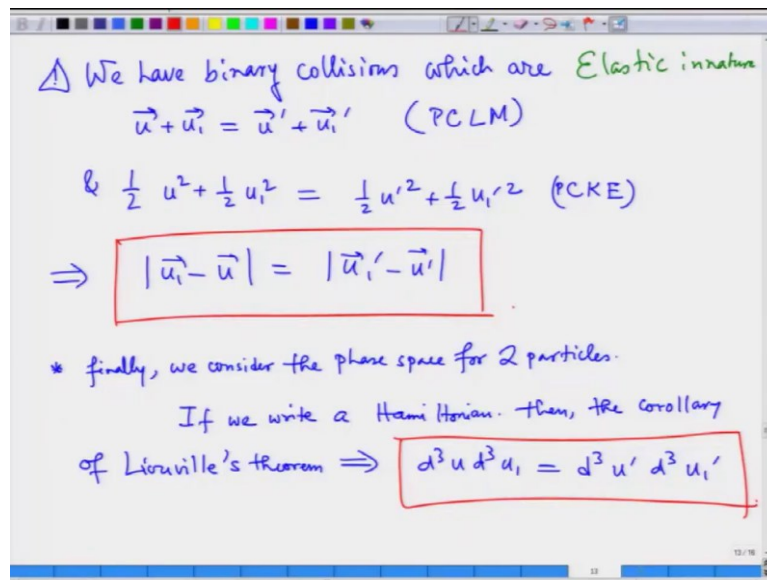 ⚠ We have binary collisions which are Elastic in nature
$\vec{u} + \vec{u_1} = \vec{u}' + \vec{u_1}'$ (PCLM)
& $\frac{1}{2} u^2 + \frac{1}{2} u_1^2 = \frac{1}{2} u'^2 + \frac{1}{2} u_1'^2$ (PCKE)
⇒ $|\vec{u_1} - \vec{u}| = |\vec{u_1}' - \vec{u}'|$
* finally, we consider the phase space for 2 particles.
If we write a Hamiltonian. then, the corollary
of Liouville's theorem ⇒ $d^3 u \, d^3 u_1 = d^3 u' \, d^3 u_1'$
13 / 16
13